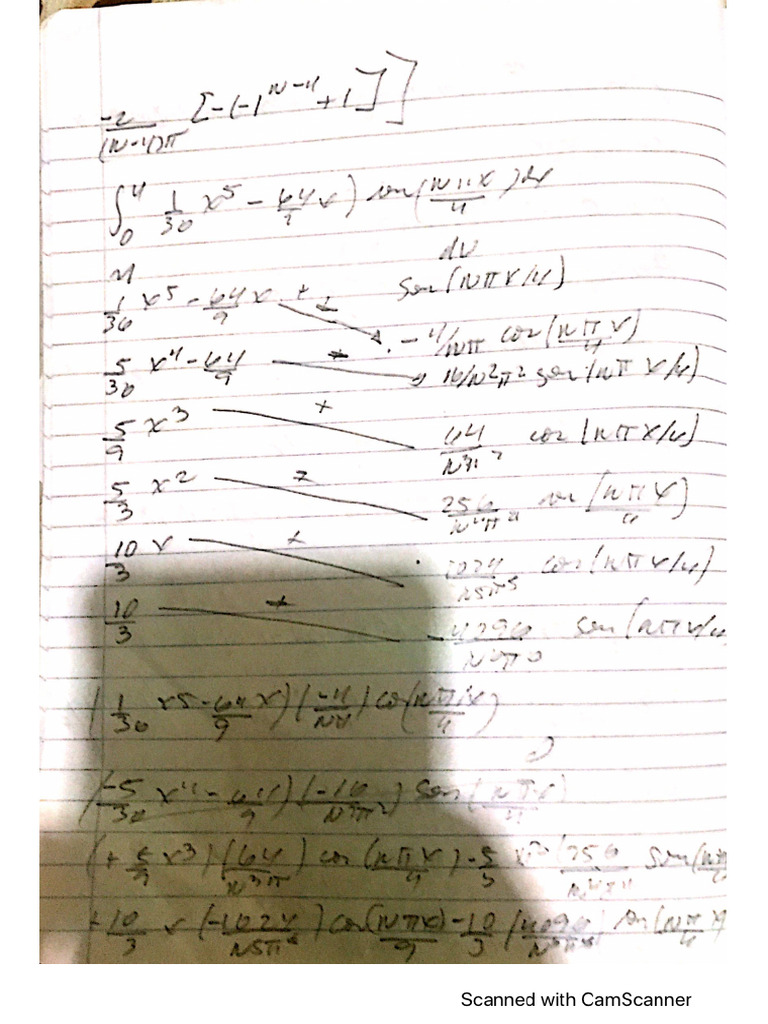 -2/(N-4)π [-(-1^{N-4}+1]]
∫₀⁴ 1/30 x⁵ - 64/9 x) sen(Nπx/4) dx
u dv
1/30 x⁵ - 64/9 x + Sen(Nπx/4)
5/30 x⁴ - 64/9 -4/Nπ cos(Nπx/4)
16/N²π² sen(Nπx/4)
5/9 x³ + 64/N³π³ cos(Nπx/4)
5/3 x² 256/N⁴π⁴ sen(Nπx/4)
10/3 x + 1024/N⁵π⁵ cos(Nπx/4)
10/3 + -4096 sen(Nπx/4
(1/30 x⁵ - 64/9 x)(-4/Nπ) cos(Nπx/4)
(-5/30 x⁴ - 64/9)(-16/N²π²) sen(Nπx/4)
(+5/9 x³)(64/N³π) cos(Nπx/4) - 5/3 x² (256/N⁴π⁴ sen(Nπ
+10/3 x (-1024/N⁵π⁵) cos(Nπx/9 - 10/3 (4096 sen(Nπ/4 x
Scanned with CamScanner